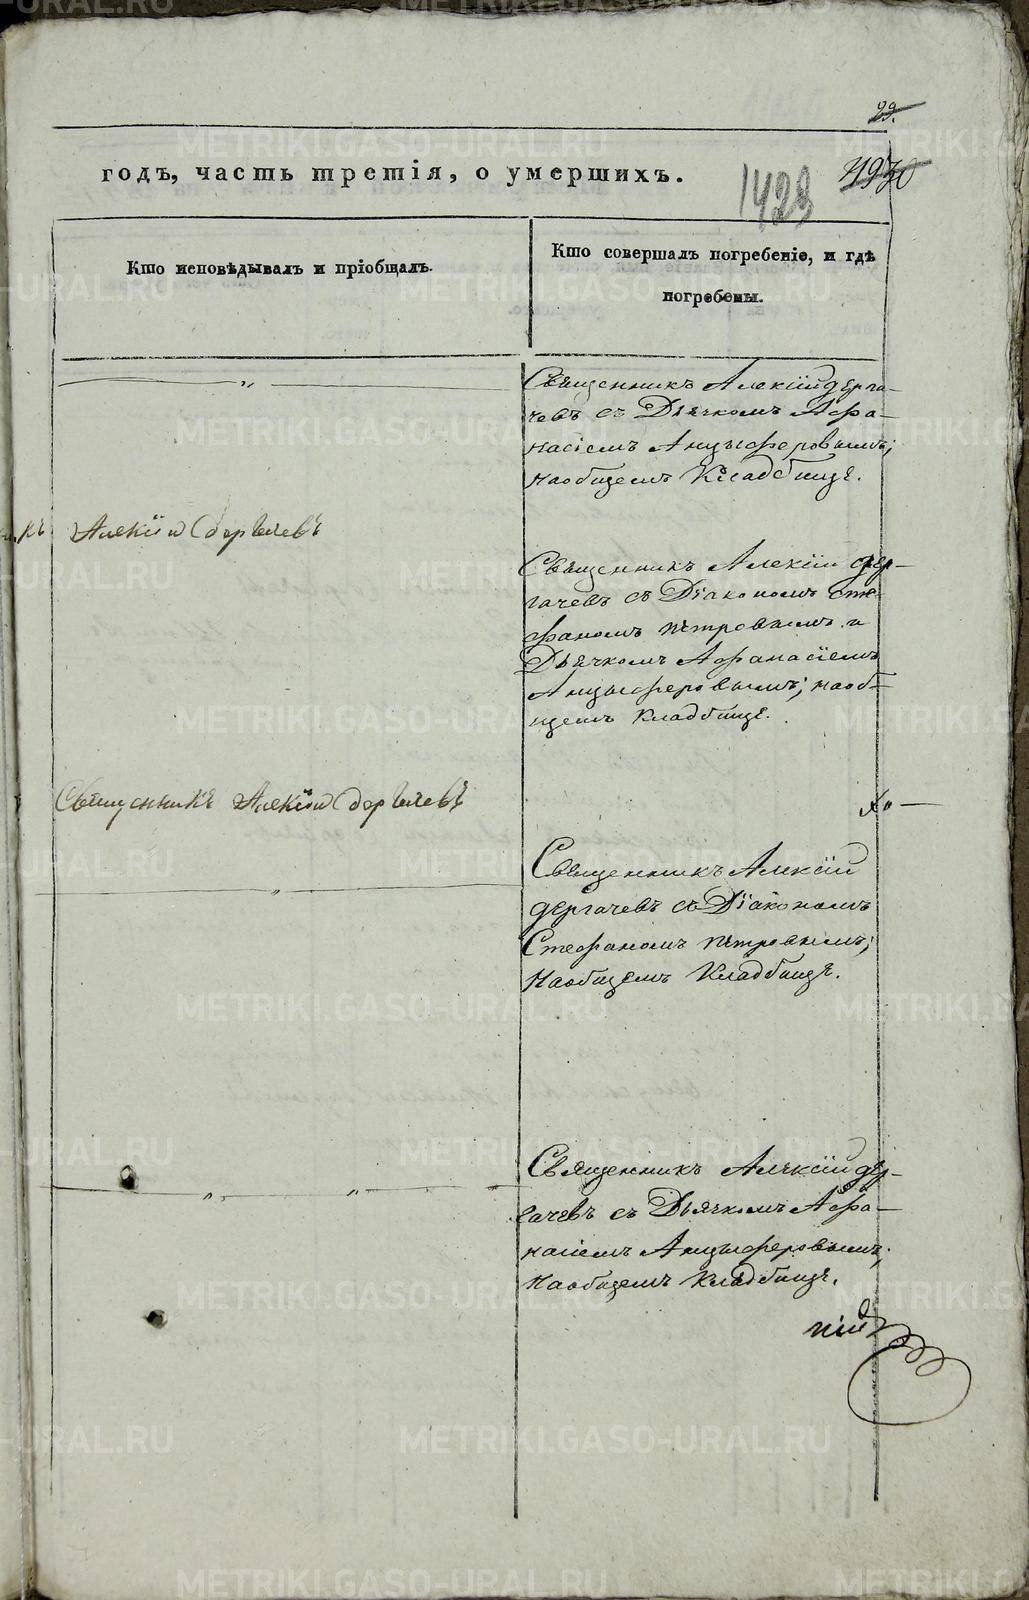 29.
годъ, часть третія, о умершихъ.
1429
Кто исповѣдывалъ и пріобщалъ.
Кто совершалъ погребеніе, и гдѣ
погребены.
Священникъ Алексій Дерга-
чевъ съ Дьячкомъ Афа-
насіемъ Анцыферовымъ;
на общемъ Кладбищѣ.
Алексій Дергачевъ
Священникъ Алексій Дер-
гачевъ съ Діакономъ Сте-
фаномъ Петровымъ и
Дьячкомъ Афанасіемъ
Анцыферовымъ; на об-
щемъ Кладбищѣ.
Священникъ Алексій Дергачевъ
Священникъ Алексій
Дергачевъ съ Діакономъ
Стефаномъ Петровымъ;
На общемъ Кладбищѣ.
Священникъ Алексій Дер-
гачевъ съ Дьячкомъ Афа-
насіемъ Анцыферовымъ;
На общемъ Кладбищѣ.
METRIKI.GASO-URAL.RU